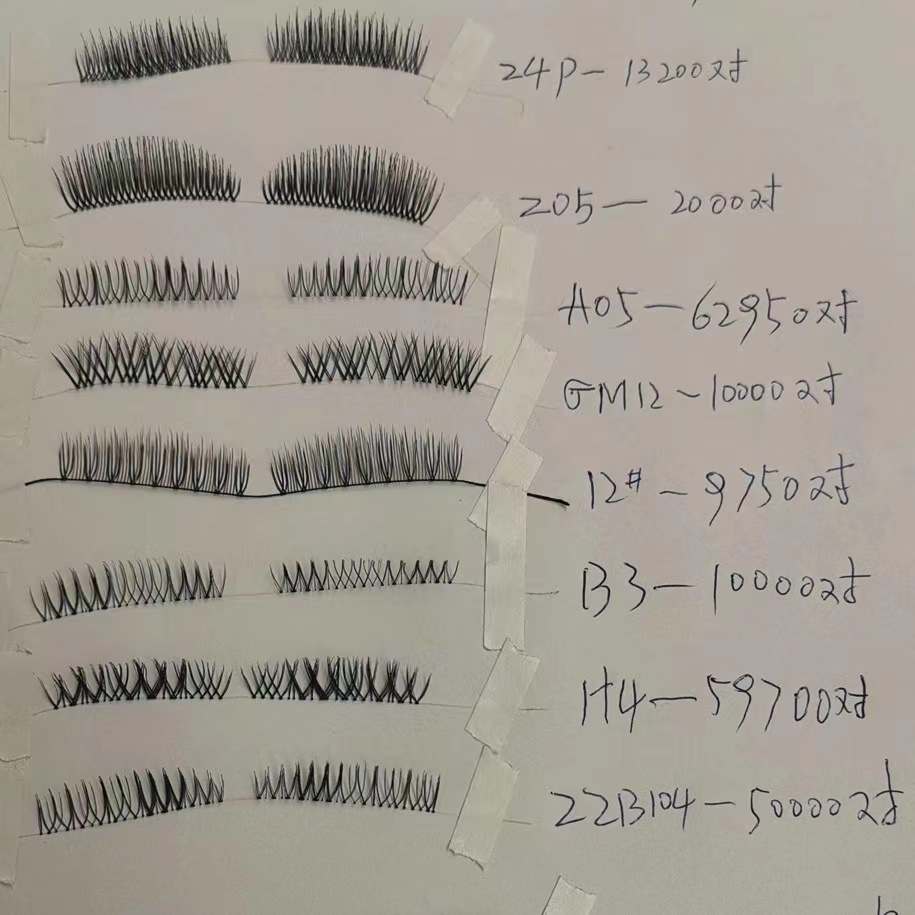 24P－13200对
Z05－2000对
A05－62950对
GM12－10000对
12#－9750对
B3－10000对
H4－59700对
22B104－50000对